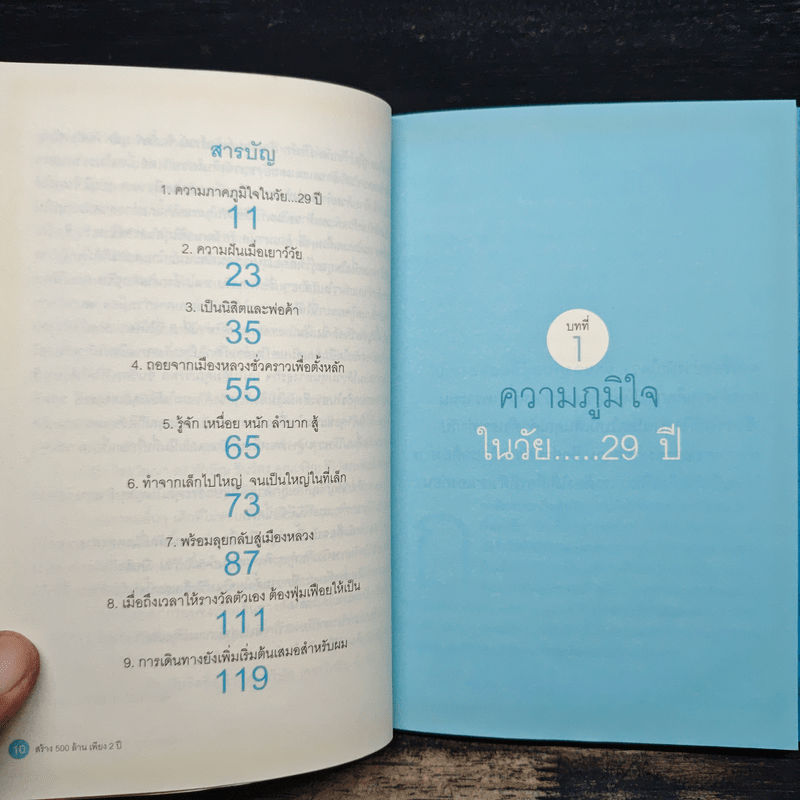 สารบัญ
1. ความภาคภูมิใจในวัย...29 ปี
11
2. ความฝันเมื่อเยาว์วัย
23
3. เป็นนิสิตและพ่อค้า
35
4. ถอยจากเมืองหลวงชั่วคราวเพื่อตั้งหลัก
55
5. รู้จัก เหนื่อย หนัก ลำบาก สู้
65
6. ทำจากเล็กไปใหญ่ จนเป็นใหญ่ในที่เล็ก
73
7. พร้อมลุยกลับสู่เมืองหลวง
87
8. เมื่อถึงเวลาให้รางวัลตัวเอง ต้องฟุ่มเฟือยให้เป็น
111
9. การเดินทางยังเพิ่มเริ่มต้นเสมอสำหรับผม
119
10 สร้าง 500 ล้าน เพียง 2 ปี
บทที่
1
ความภูมิใจ
ในวัย.....29 ปี